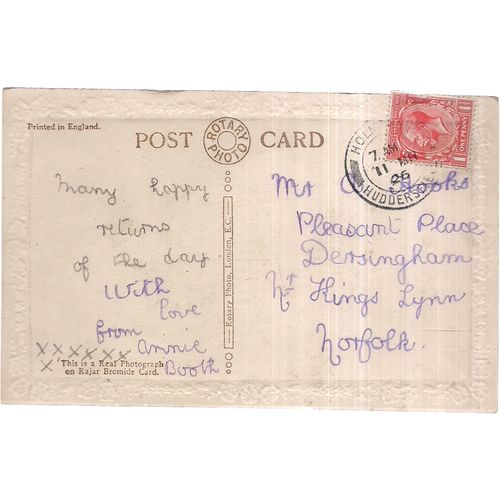 Printed in England.
POST CARD
ROTARY PHOTO
Many happy
returns
of the day
With
love
from
Annie
Booth
xxxxxx
x
This is a Real Photograph
on Rajar Bromide Card.
Rotary Photo, London, E.C.
ONE PENNY
7. AM
11 MAR
26
HUDDERSFIE
Mr C Hooks
Pleasant Place
Dersingham
Nr Kings Lynn
Norfolk.